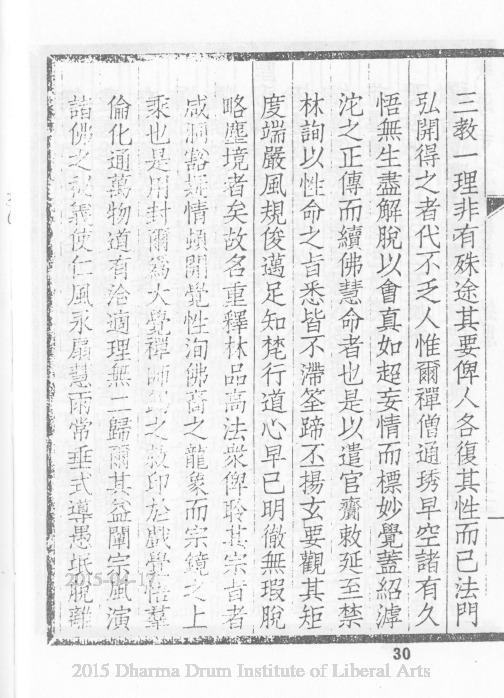 三教一理非有殊途其要俾人各復其性而已法門
弘開得之者代不乏人惟爾禪僧通琇早空諸有久
悟無生盡解脫以會真如超妄情而標妙覺蓋紹滹
沱之正傳而續佛慧命者也是以遣官齎敕延至禁
林詢以性命之旨悉皆不滯筌蹄丕揚玄要觀其矩
度端嚴風規俊邁足知梵行道心早已明徹無瑕脫
略塵境者矣故名重釋林品高法衆俾聆其宗旨者
咸淍豁疑情頓開覺性洵佛裔之龍象而宗鏡之上
乘也是用封爾爲大覺禪師錫之敕印於戲覺悟羣
倫化通萬物道有洽適理無二歸爾其益闡宗風演
諸佛之秘義使仁風永扇慧雨常垂式導愚氓脫離
30
2015-04-17
2015 Dharma Drum Institute of Liberal Arts